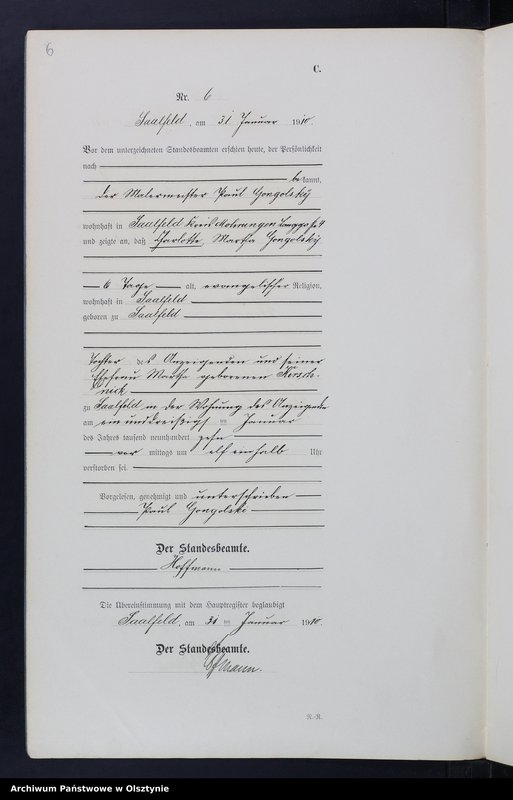 6
C.
Nr. 6
Saalfeld, am 31 Januar 1910.
Vor dem unterzeichneten Standesbeamten erschien heute, der Persönlichkeit
nach
bekannt,
der Malermeister Paul Gongolsky
wohnhaft in Saalfeld Kreis Mohrungen
und zeigte an, daß Charlotte Martha Gongolsky
6 Tage alt, evangelischer Religion,
wohnhaft in Saalfeld
geboren zu Saalfeld
Tochter des Anzeigenden und seiner
Ehefrau Martha geborenen
zu Saalfeld in der Wohnung des Anzeigenden
am einunddreißigsten Januar
des Jahres tausend neunhundert zehn
vor mittags um elf einhalb Uhr
verstorben sei.
Vorgelesen, genehmigt und unterschrieben
Paul Gongolski
Der Standesbeamte.
Hoffmann
Die Übereinstimmung mit dem Hauptregister beglaubigt
Saalfeld, am 31 ten Januar 1910.
Der Standesbeamte.
R.-R.
Archiwum Państwowe w Olsztynie